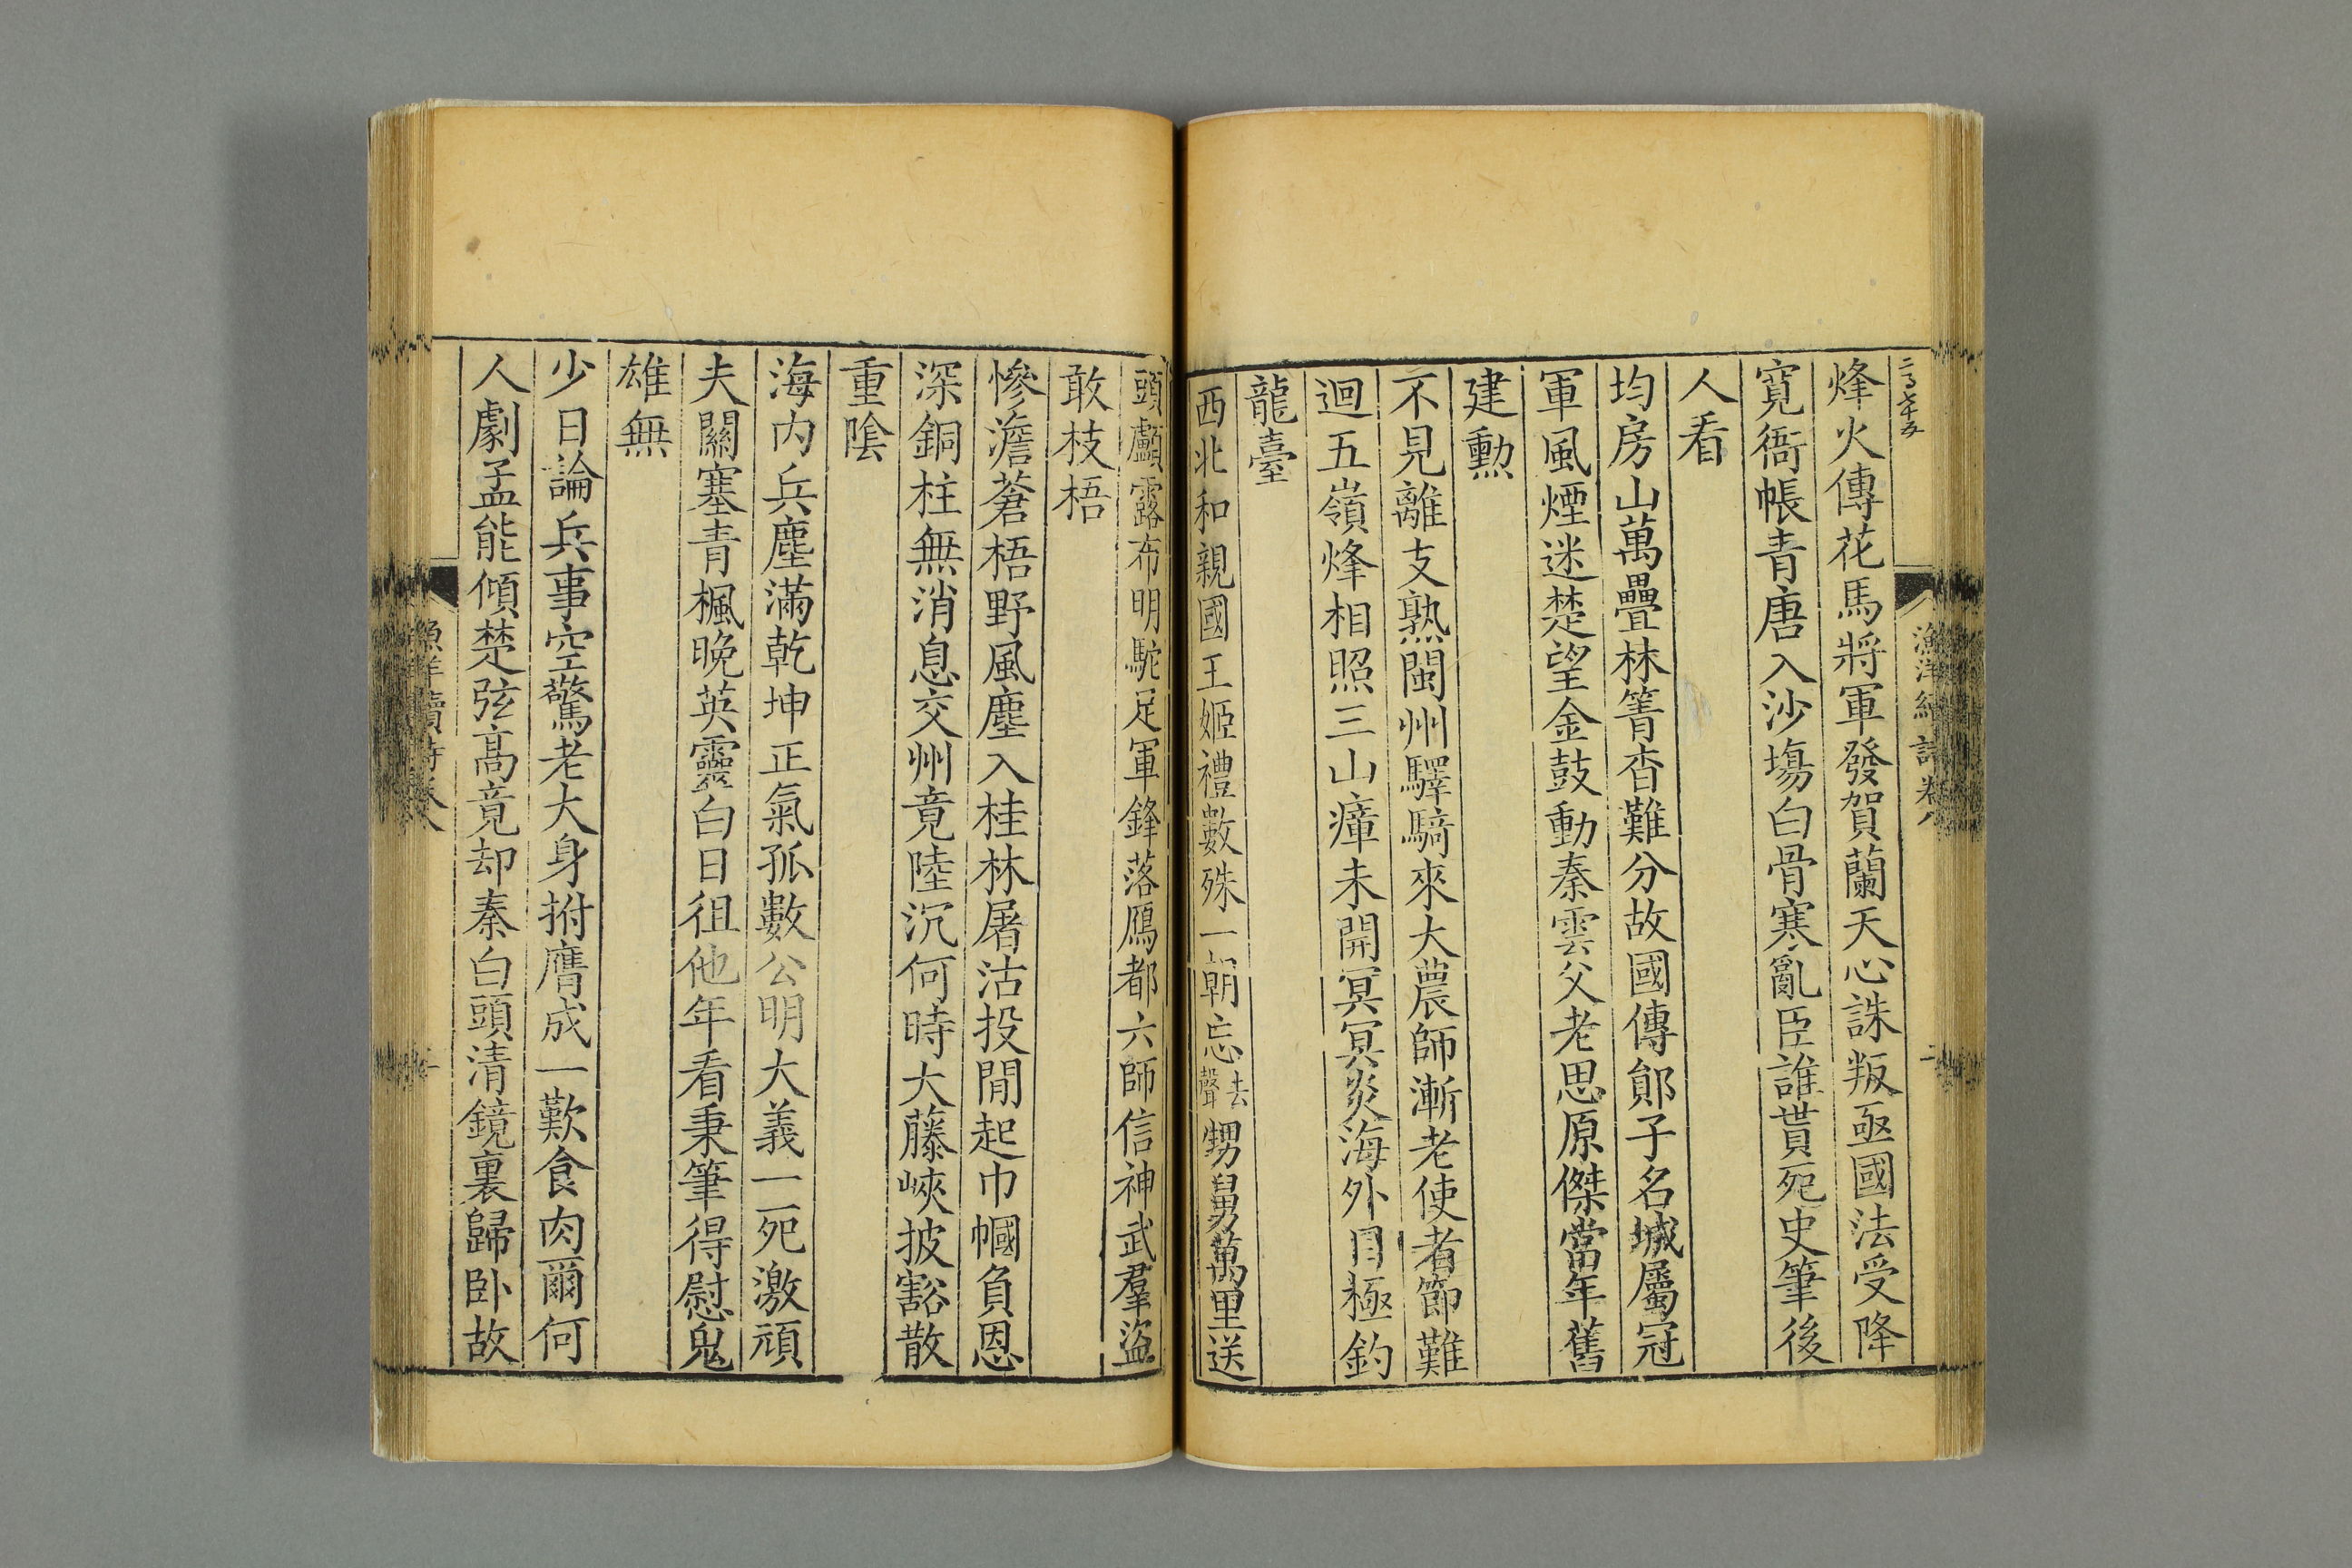 烽火傳花馬將軍發賀蘭天心誅叛亟國法受降
寬衙帳青唐入沙場白骨寒亂臣誰貰死史筆後
人看
均房山萬疊林箐杳難分故國傳鄖子名城屬冠
軍風煙迷楚望金鼓動秦雲父老思原傑當年舊
建勲
不見離支熟閩州驛騎來大農師漸老使者節難
迴五嶺烽相照三山瘴未開冥冥炎海外目極釣
龍臺
西北和親國王姬禮數殊一朝忘去聲甥舅萬里送
頭顱露布明駝足軍鋒落鴈都六師信神武羣盜
敢枝梧
慘澹蒼梧野風塵入桂林屠沽投閒起巾幗負恩
深銅柱無消息交州竟陸沉何時大藤峽披豁散
重陰
海內兵塵滿乾坤正氣孤數公明大義一死激頑
夫關塞青楓晚英靈白日徂他年看秉筆得慰鬼
雄無
少日論兵事空驚老大身拊膺成一歎食肉爾何
人劇孟能傾楚弦高竟却秦白頭清鏡裏歸卧故